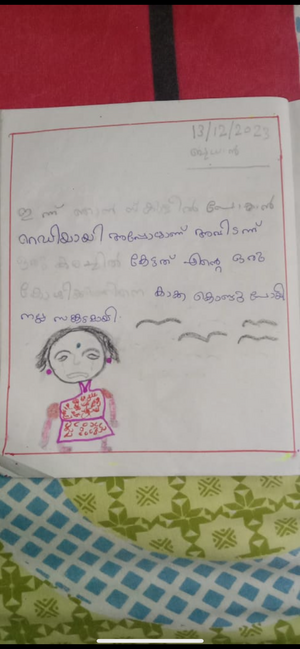 13/12/2023
ബുധൻ
ഇന്ന് ഞാൻ സ്കൂളിൽ പോകാൻ
റെഡിയായി അപ്പോഴാണ് അവിടന്ന്
ഒരു കേട്ടത് എന്റെ ഒരു
കോഴിക്കുഞ്ഞിനെ കാക്ക കൊണ്ടുപോയി
നല്ല സങ്കടമായി.